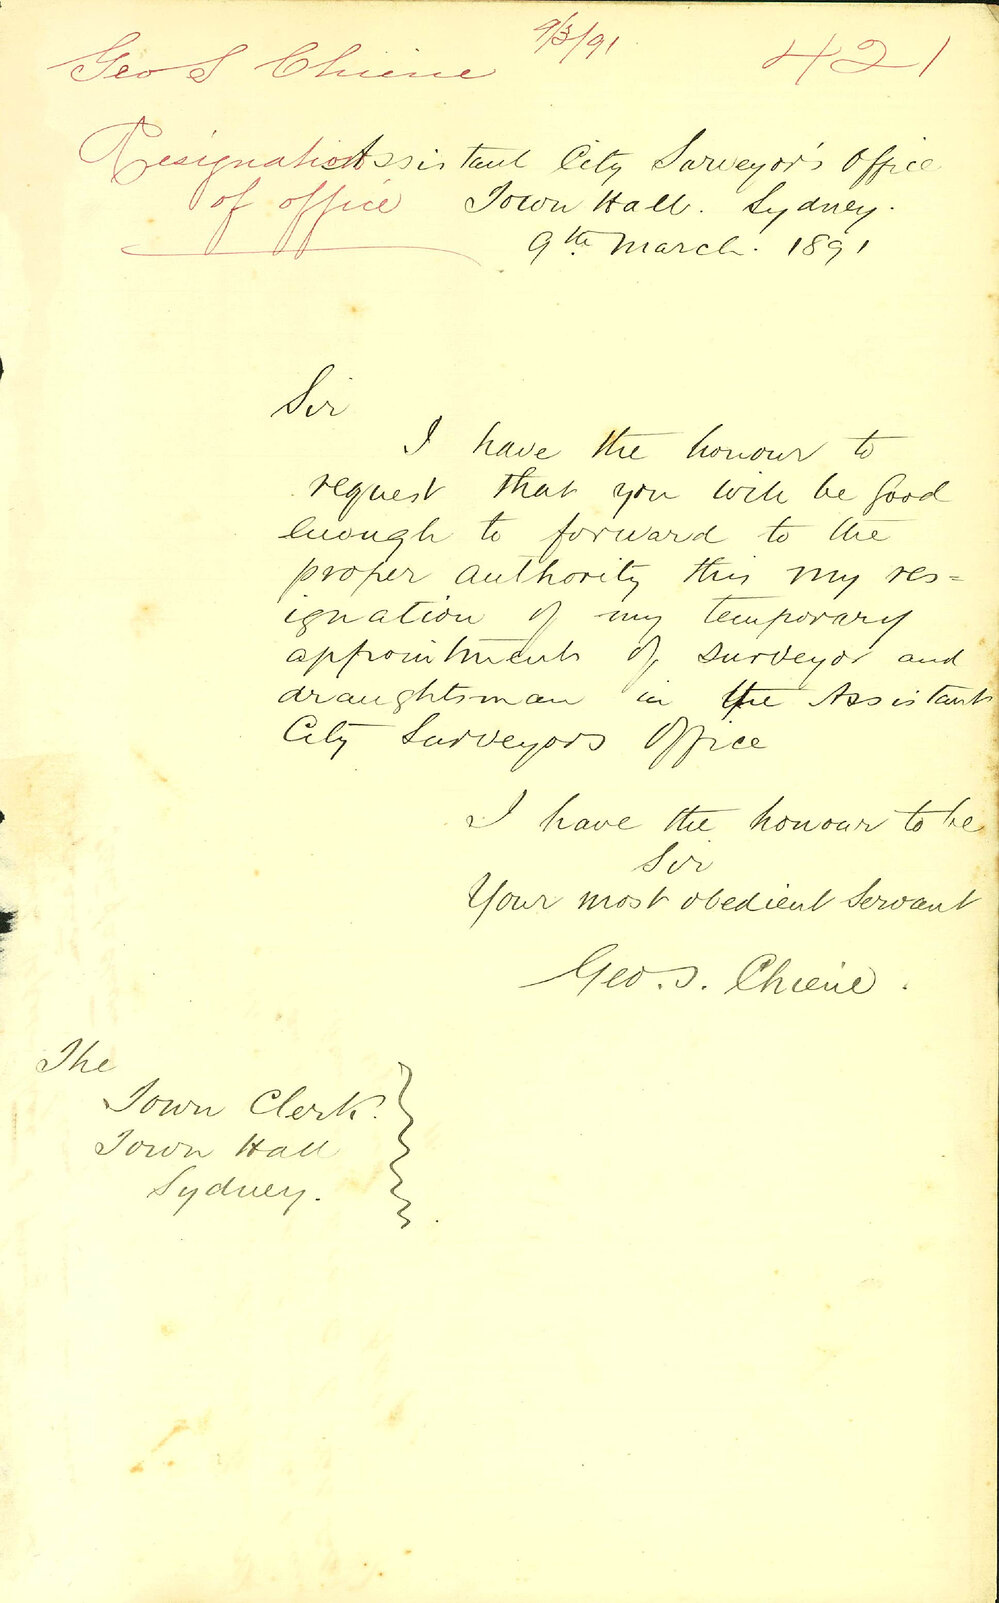 9/3/91
Geo S Chiene
421
Resignation
of office
Assistant City Surveyor's Office
Town Hall. Sydney.
9th March. 1891
Sir
I have the honour to
request that you will be good
enough to forward to the
proper authority this my res=
ignation of my temporary
appointments of surveyor and
draughtsman in the Assistant
City Surveyors Office
I have the honour to be
Sir
Your most obedient Servant
Geo. S. Chiene.
The
Town Clerk.
Town Hall
Sydney.